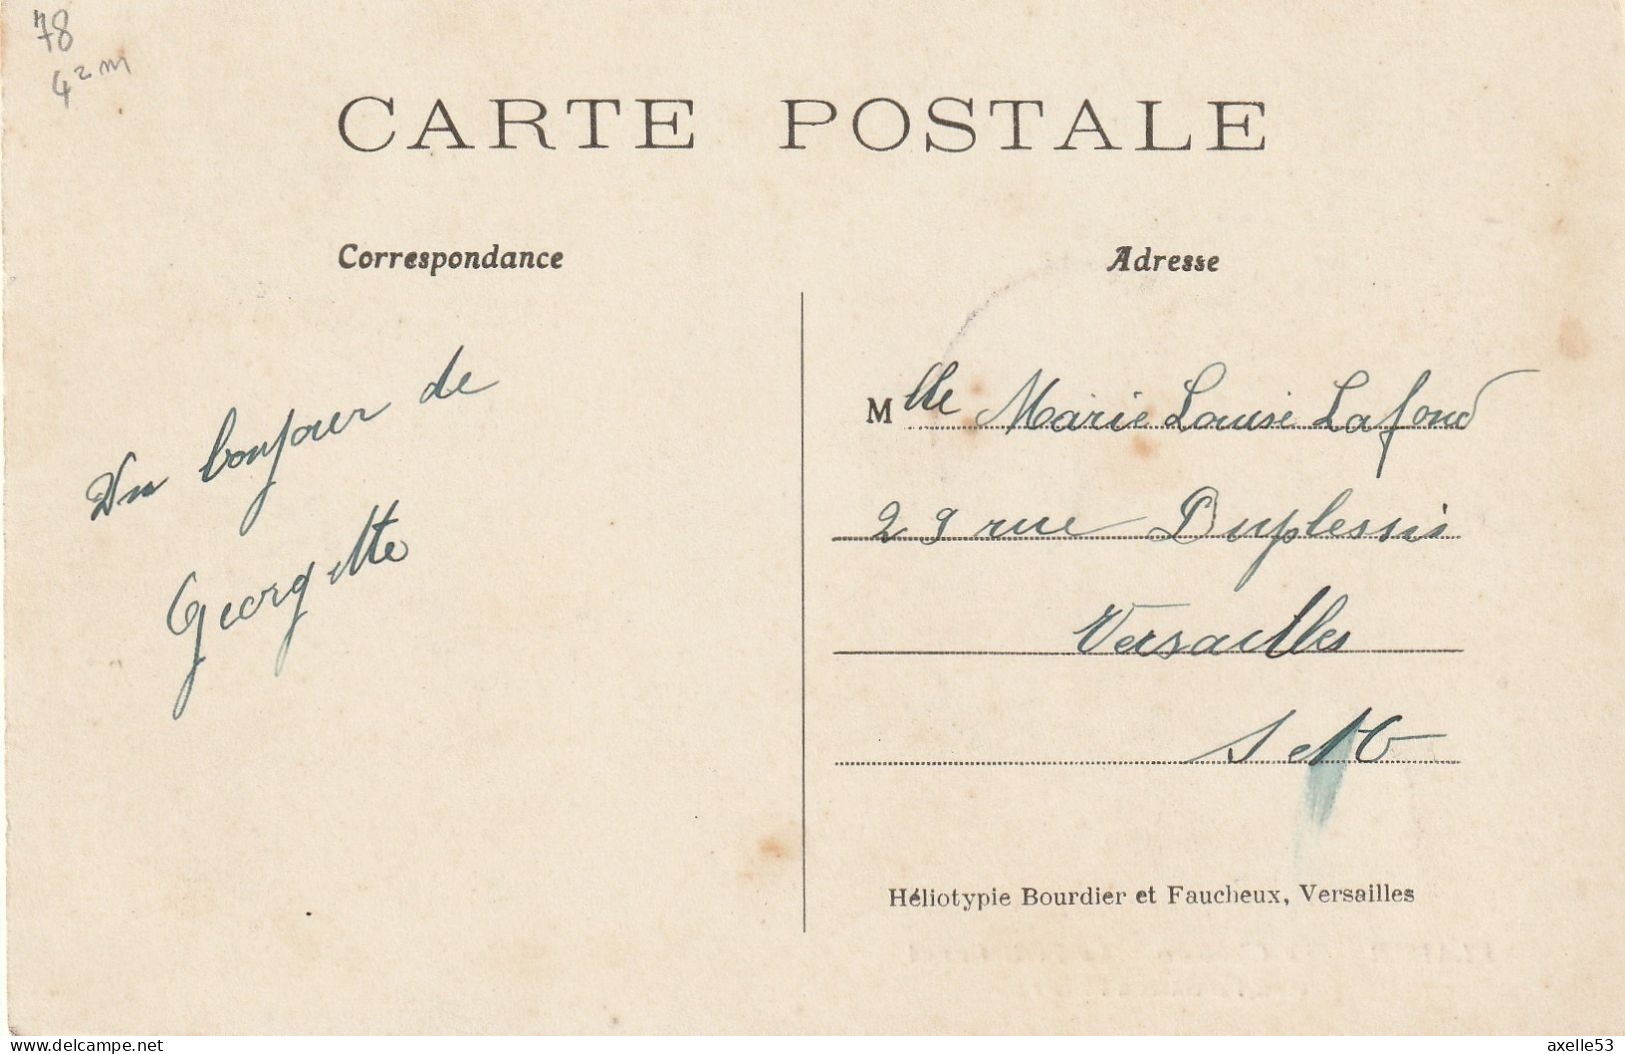 78
4²m
CARTE POSTALE
Correspondance
Un bonjour de
Georgette
Adresse
Mlle Marie Louise Lafond
29 rue Duplessis
Versailles
S et O
Héliotypie Bourdier et Faucheux, Versailles
Delcampe.net
axelle53